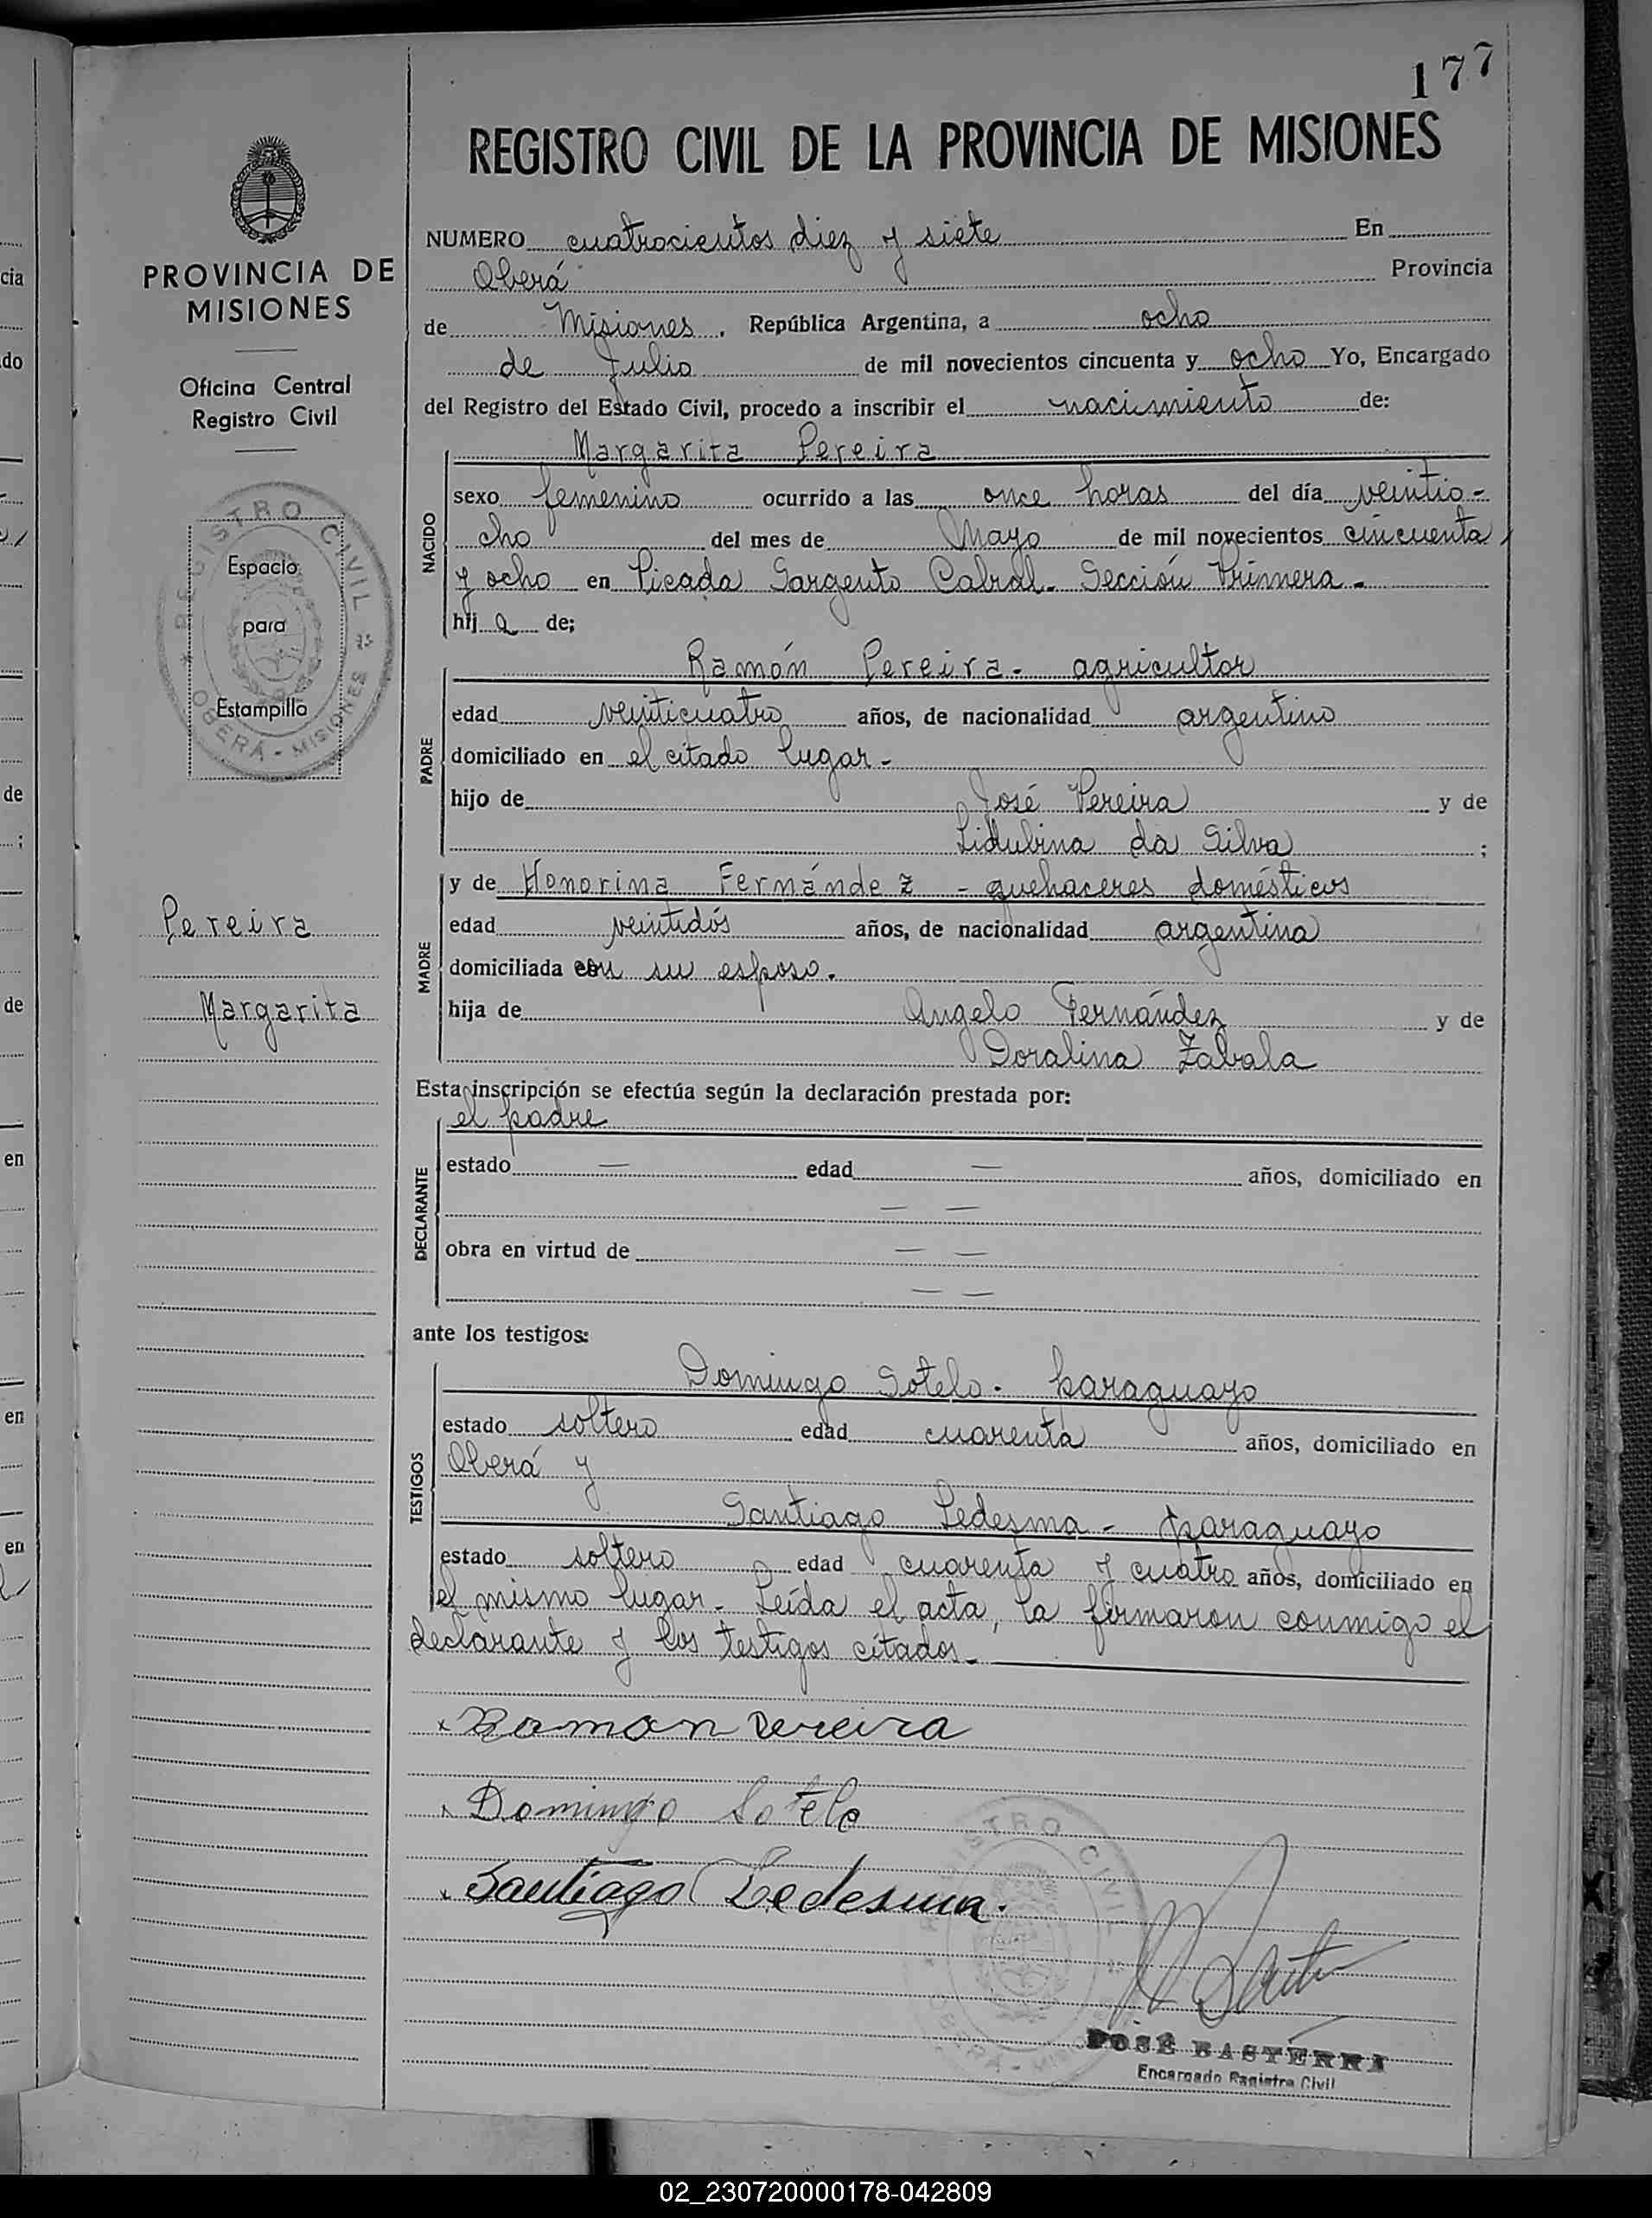 177
REGISTRO CIVIL DE LA PROVINCIA DE MISIONES
PROVINCIA DE
MISIONES
Oficina Central
Registro Civil
REGISTRO CIVIL
OBERÁ - MISIONES
Espacio
para
Estampilla
Pereira
Margarita
NUMERO cuatrocientos diez y siete En
Oberá Provincia
de Misiones. República Argentina, a ocho
de Julio de mil novecientos cincuenta y ocho Yo, Encargado
del Registro del Estado Civil, procedo a inscribir el nacimiento de:
NACIDO
Margarita Pereira
sexo femenino ocurrido a las once horas del día veintio-
cho del mes de Mayo de mil novecientos cincuenta
y ocho en Picada Sargento Cabral - Sección Primera -
hij a de;
PADRE
Ramón Pereira - agricultor
edad veinticuatro años, de nacionalidad argentino
domiciliado en el citado lugar -
hijo de José Pereira y de
Lidubina da Silva ;
MADRE
y de Honorina Fernández - quehaceres domésticos
edad veintidós años, de nacionalidad argentina
domiciliada con su esposo.
hija de Angelo Fernández y de
Doralina Zabala
Esta inscripción se efectúa según la declaración prestada por:
DECLARANTE
el padre
estado — edad — años, domiciliado en
— —
obra en virtud de — —
— —
ante los testigos:
TESTIGOS
Domingo Sotelo - paraguayo
estado soltero edad cuarenta años, domiciliado en
Oberá y
Santiago Ledesma - paraguayo
estado soltero edad cuarenta y cuatro años, domiciliado en
el mismo lugar - Leída el acta, la firmaron conmigo el
declarante y los testigos citados -
x Ramon Pereira
x Domingo Sotelo
x Santiago Ledesma.
REGISTRO CIVIL
JOSÉ BASTERRA
Encargado Registro Civil
02_230720000178-042809